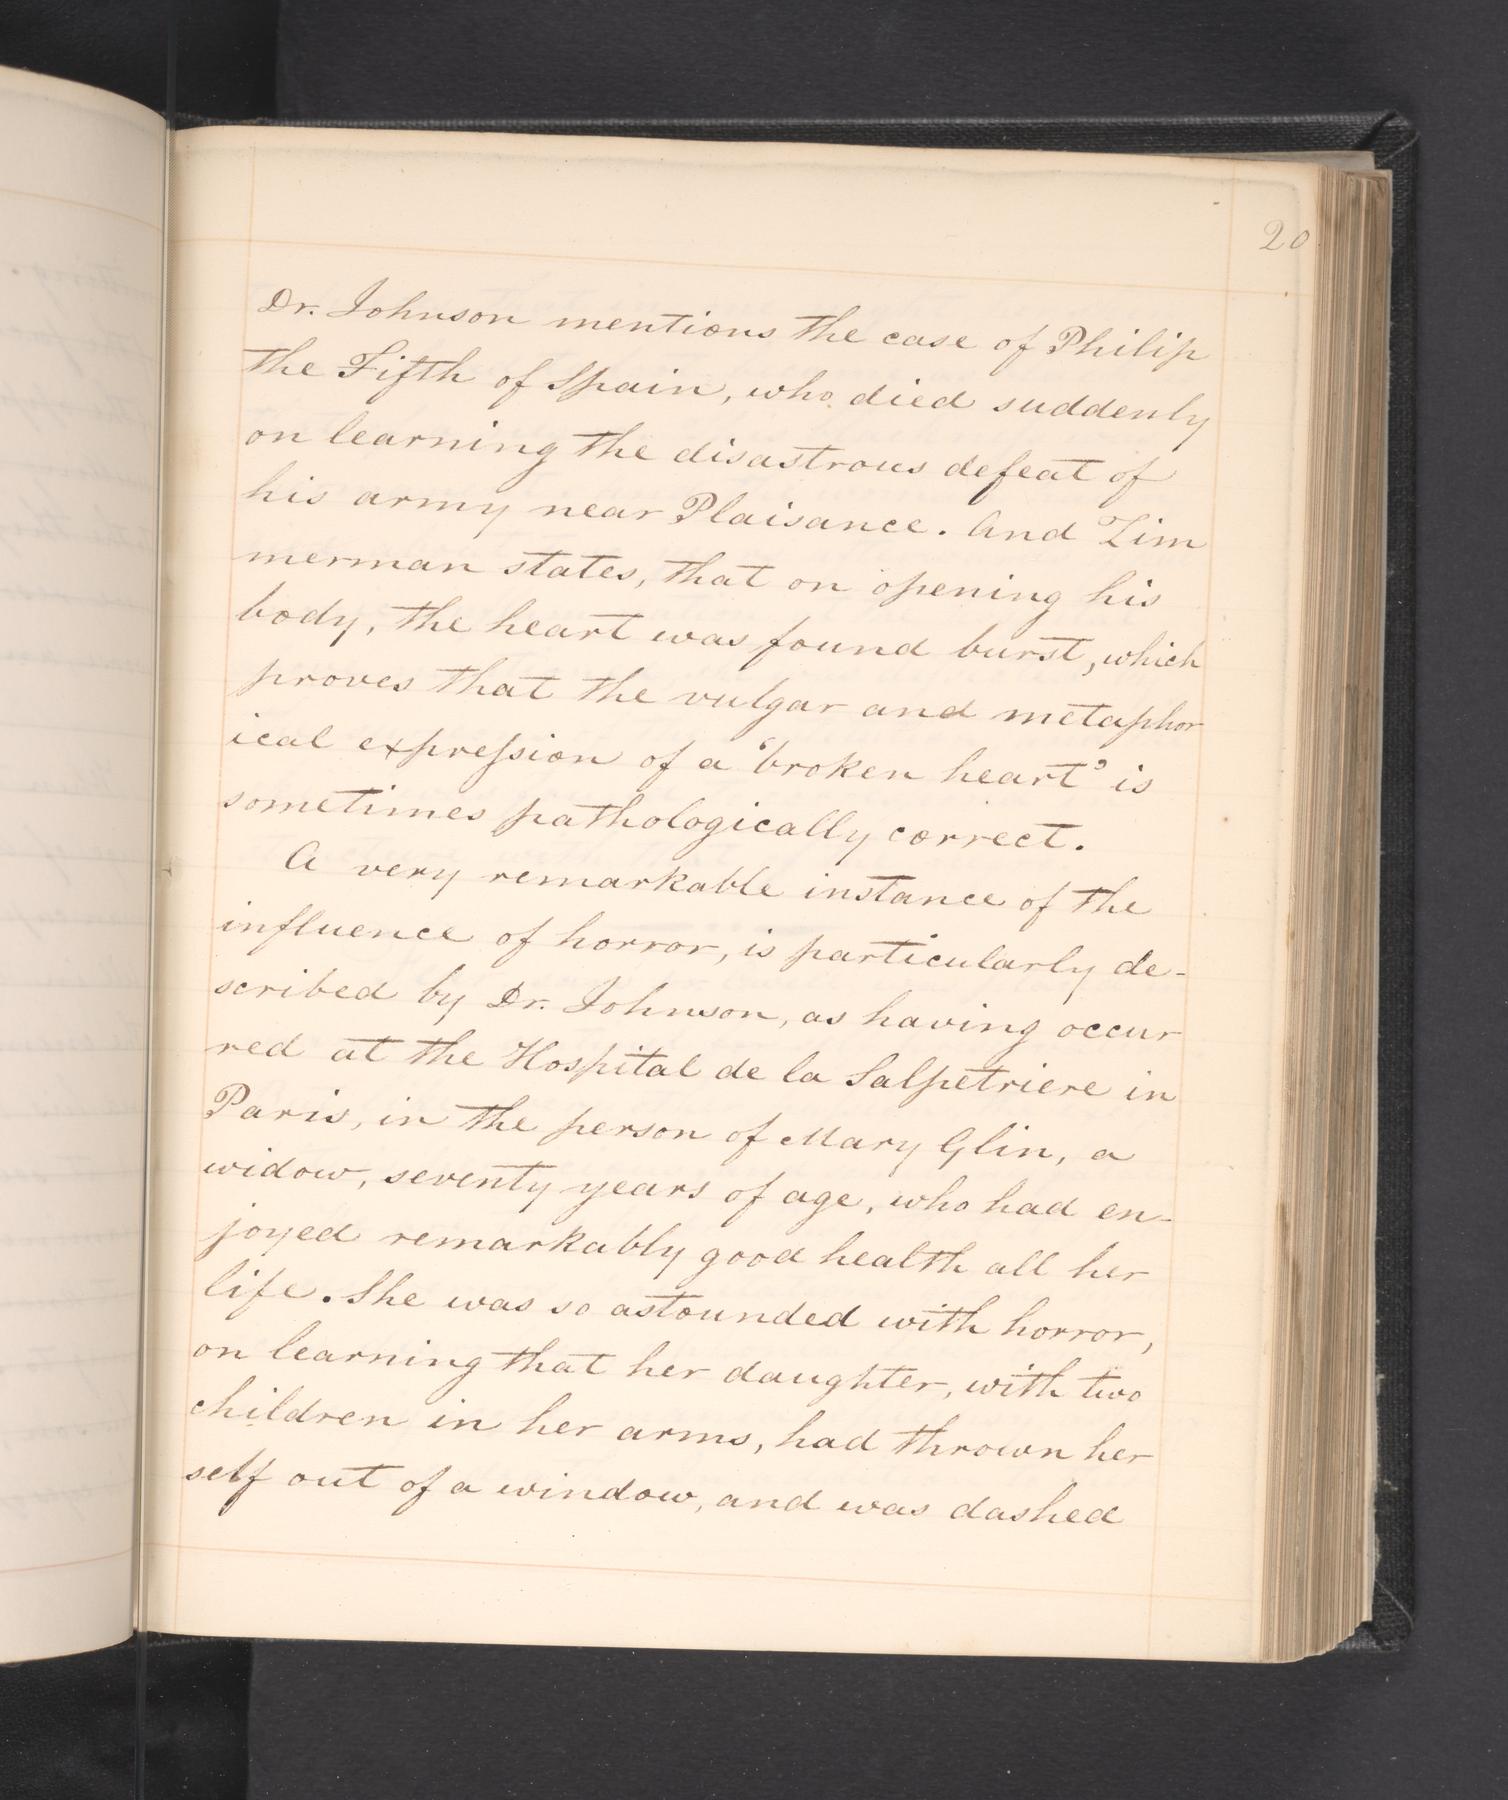 20
Dr. Johnson mentions the case of Philip
the Fifth of Spain, who died suddenly
on learning the disastrous defeat of
his army near Plaisance. And Zim
merman states, that on opening his
body, the heart was found burst, which
proves that the vulgar and metaphor
ical expreſsion of a 'broken heart' is
sometimes pathologically correct.
A very remarkable instance of the
influence of horror, is particularly de-
scribed by Dr. Johnson, as having occur
red at the Hospital de la Salpetriere in
Paris, in the person of Mary Glin, a
widow, seventy years of age, who had en-
joyed remarkably good health all her
life. She was so astounded with horror,
on learning that her daughter, with two
children in her arms, had thrown her
self out of a window, and was dashed